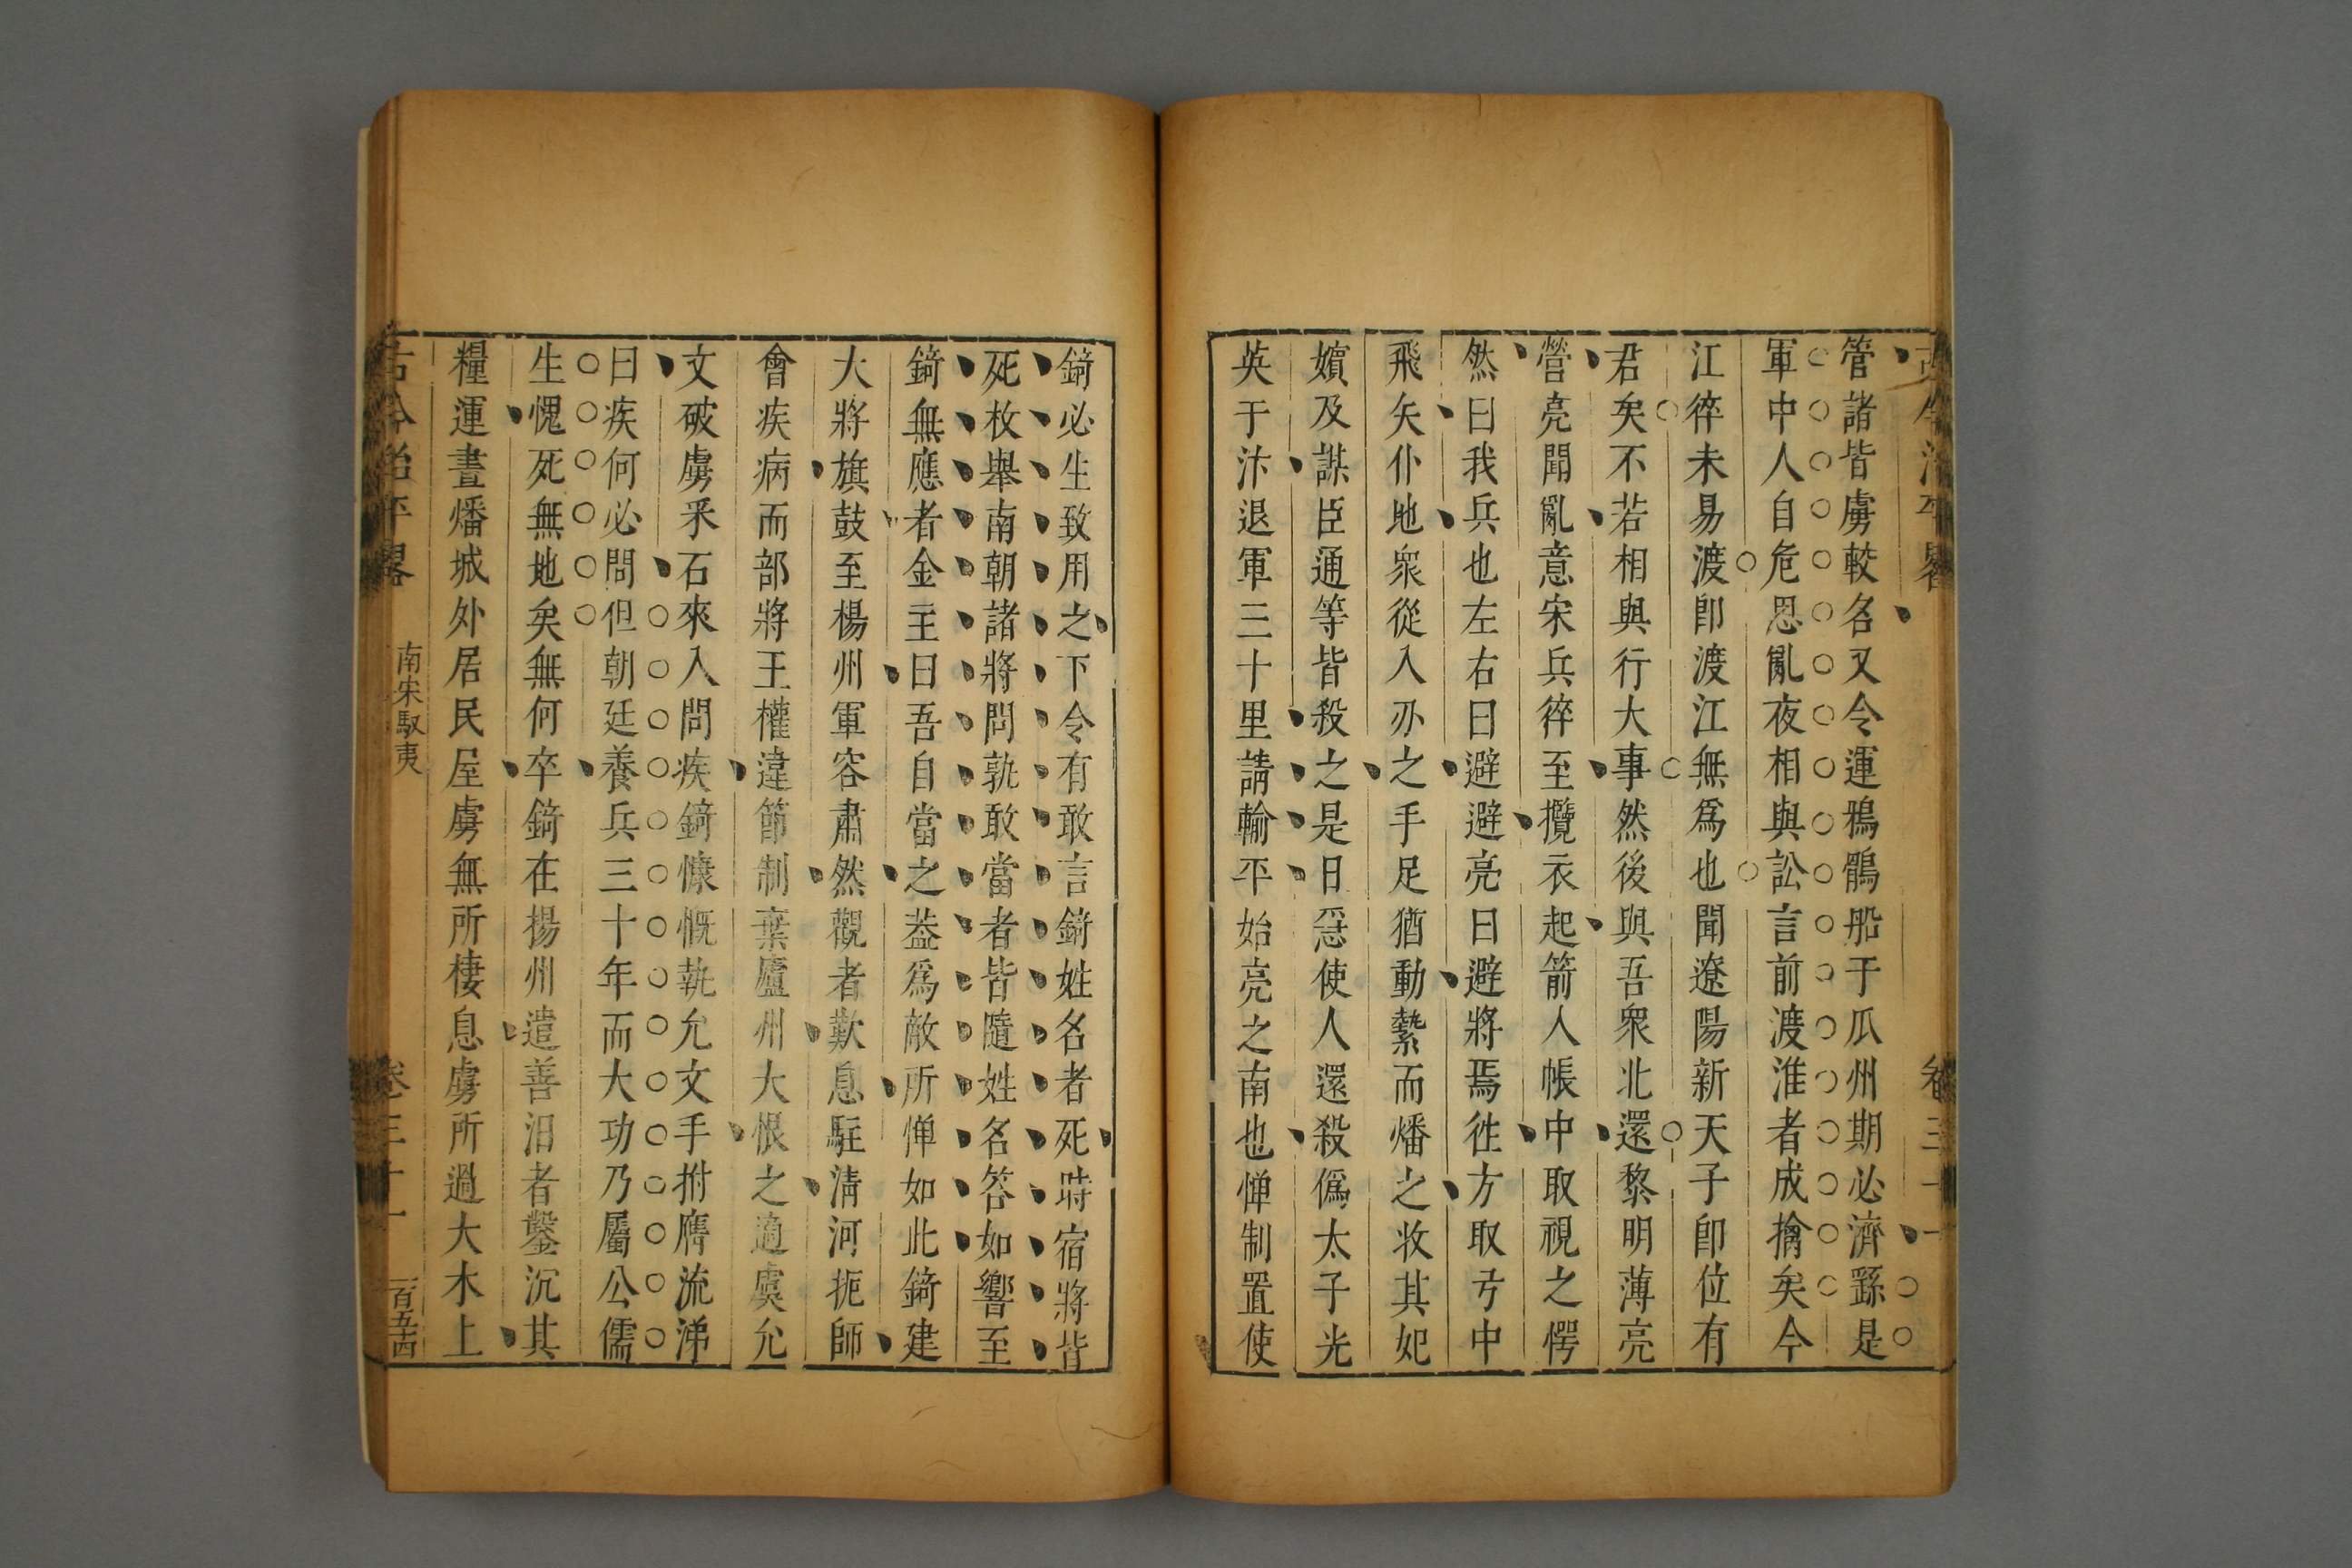 古今治平畧 卷三十一
管諸皆虜較名又令運鴉鶻船于瓜州期必濟繇是
軍中人自危思亂夜相與訟言前渡淮者成擒矣今
江徃未易渡卽渡江無爲也聞遼陽新天子卽位有
君矣不若相與行大事然後與吾衆北還黎明薄亮
營亮聞亂意宋兵徃至攬衣起箭入帳中取視之愕
然曰我兵也左右曰避避亮曰避將焉徃方取弓中
飛矢仆地衆從入刅之手足猶動縶而燔之收其妃
嬪及謀臣通等皆殺之是日惌使人還殺僞太子光
英于汴退軍三十里請輸平始亮之南也憚制置使
錡必生致用之下令有敢言錡姓名者死時宿將皆
死枚舉南朝諸將問孰敢當者皆隨姓名答如響至
錡無應者金主曰吾自當之葢爲敵所憚如此錡建
大將旗鼓至楊州軍容肅然觀者歎息駐淸河扼師
會疾病而部將王權違節制棄廬州大恨之適虞允
文破虜釆石來入問疾錡慷慨執允文手拊膺流涕
曰疾何必問但朝廷養兵三十年而大功乃屬公儒
生愧死無地矣無何卒錡在揚州遣善泅者鑿沉其
糧運晝燔城外居民屋虜無所棲息虜所過大木上
古今治平畧 南宋馭夷 卷三十一 一百五十四